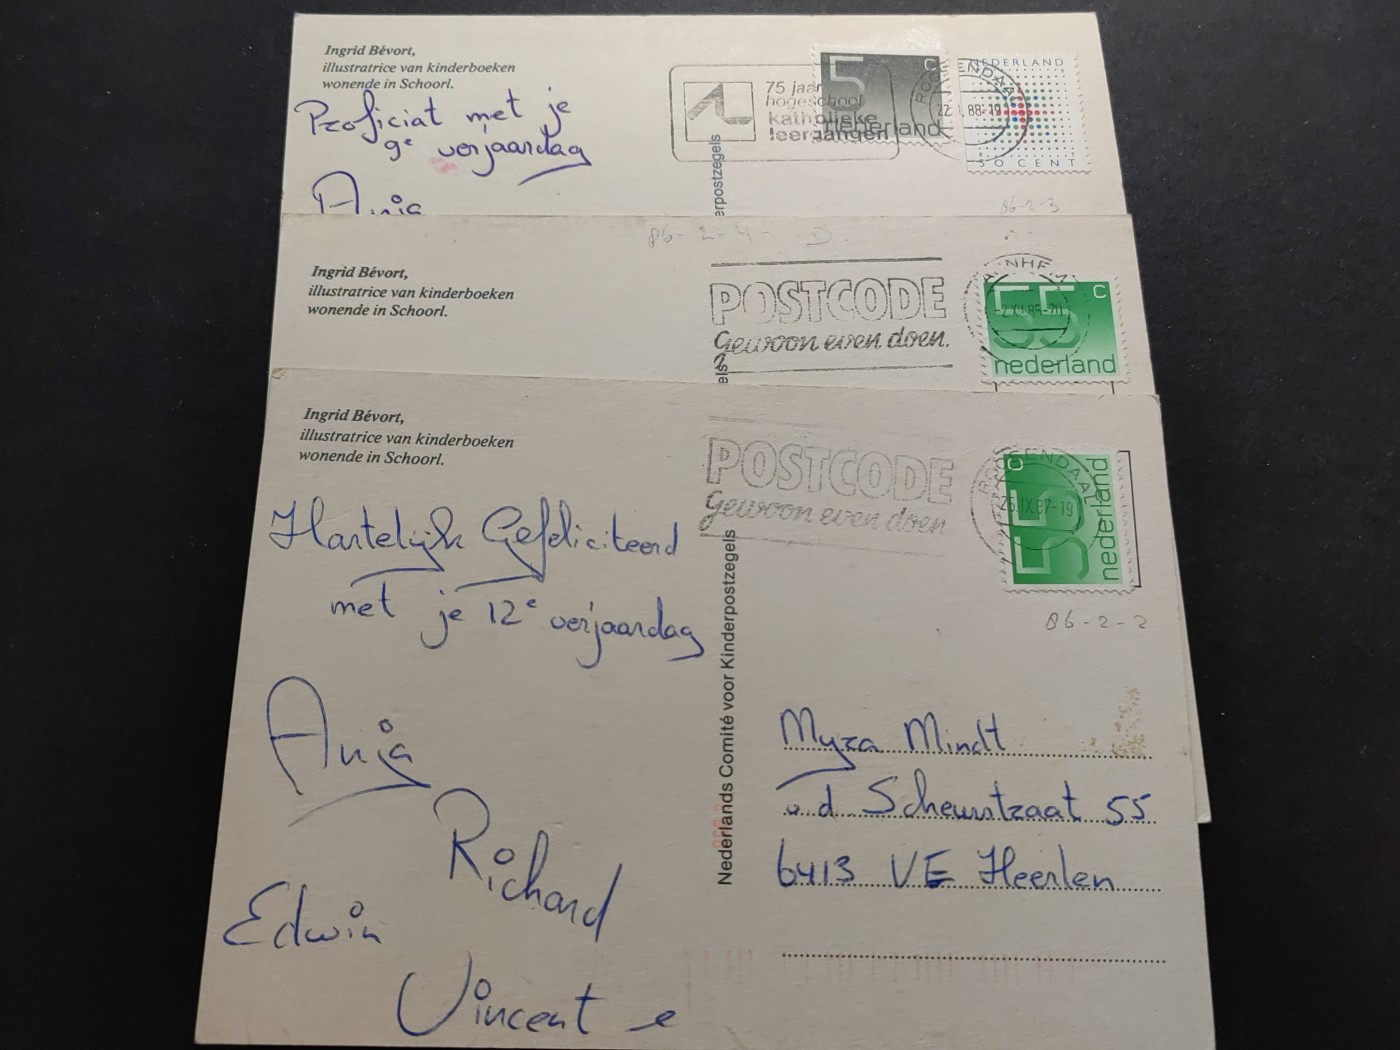 Ingrid Bévort,
illustratrice van kinderboeken
wonende in Schoorl.
Proficiat met je
9e verjaardag
Anja
75 jaar
hogeschool
katholieke
leergangen
5 c
nederland
22
88-19
NEDERLAND
50 CENT
erpostzegels
86-2-3
86-2-4- D
Ingrid Bévort,
illustratrice van kinderboeken
wonende in Schoorl.
POSTCODE
Gewoon even doen.
els
55 c
nederland
Ingrid Bévort,
illustratrice van kinderboeken
wonende in Schoorl.
POSTCODE
Gewoon even doen
ROOSENDAAL
25.IX.87-19
55 c
nederland
86-2-2
Hartelijk Gefeliciteerd
met je 12e verjaardag
Anja
Richard
Edwin
Vincent e
Nederlands Comité voor Kinderpostzegels
Myra Mindt
v.d. Scheurstraat 55
6413 VE Heerlen